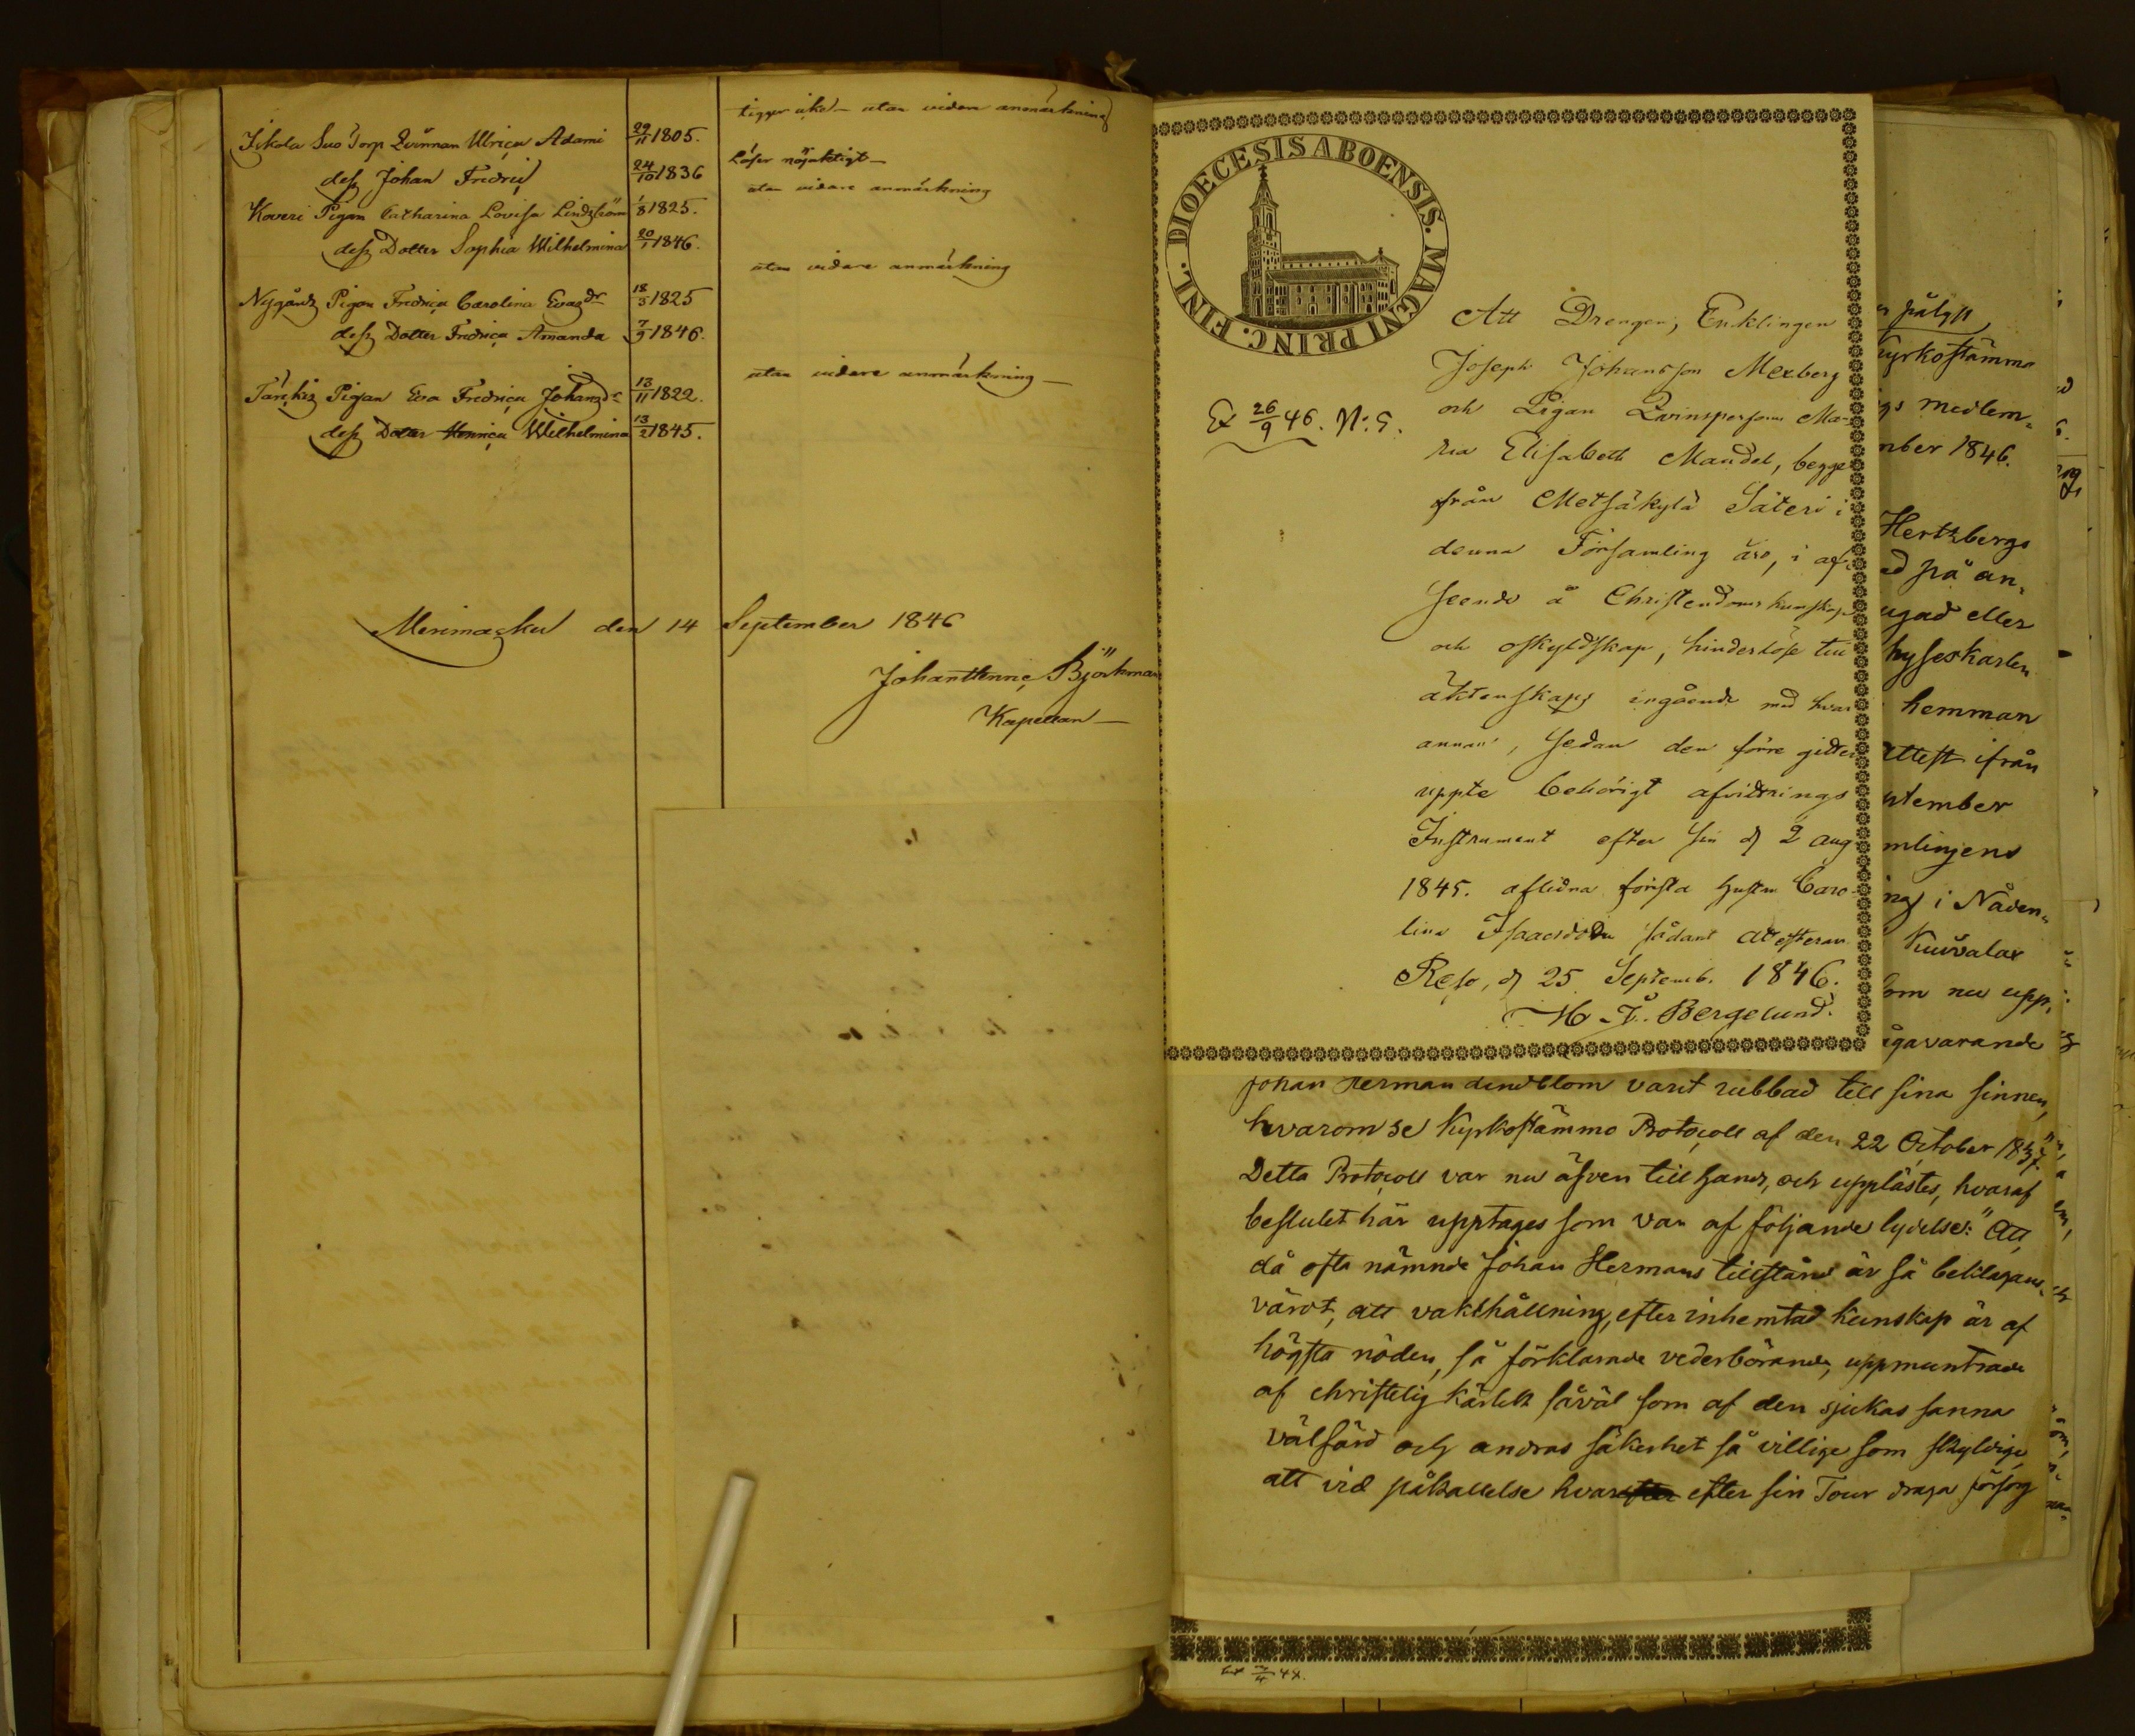 tigger icke utan vidare anmärkning
Ikola Suo Torp Qvinnan Ulrica Adami 29/11 1805.
dess Johan Fredric 24/10 1836 Läser nöjaktigt
Koveri Pigan Catharina Lovisa Lindström 1/8 1825. utan vidare anmärkning
dess Dotter Sophia Wilhelmina 20/1 1846.
Nygårds Pigan Fredrica Carolina Evasdr 18/5 1825 utan vidare anmärkning
dess Dotter Fredrica Amanda 7/9 1846.
Tarckis Pigan Eva Fredrica Johansdr 13/11 1822. utan vidare anmärkning
dess Dotter Henrica Wilhelmina 13/2 1845.
Merimasku den 14 September 1846
Johan Henric Björkman
Kapellan
FINL. DIOECESIS ABOENSIS. MAGNI PRINC.
Ex 26/9 46. N:5.
Att Drengen, Enklingen
Joseph Johansson Mexberg
och Pigan Qvinsperson Ma-
ria Elisabeth Mandel, begge
från Metsäkylä Säteri i
denna Församling äro, i af-
seende å Christendoms kunskap
och oskyldskap, hinderlöse till
äktenskaps ingående med hvar
annan, sedan den förre gidter
uppte behörigt afvittrings
Instrument efter sin d 2 aug
1845. aflidna första hustru Caro-
lina Isaacsdotter sådant attesteras
Reso, d 25 Septemb. 1846.
H. F. Bergelund.
pålyst
kyrkostämma
medlem-
mber 1846.
Hertzbergs
ed på an-
ugad eller
hyseskarlen
hemman
attest ifrån
ptember
mlingens
i Nåden-
Kuuvalax
som nu upp-
ågavarande
Johan Herman Lindblom varit rubbad till sina sinnen,
hvarom se Kyrkostämmo Protocoll af den 22 October 1837.
Detta Protocoll var nu äfven till hands, och upplästes, hvaraf
beslutet här upptages som var af följande lydelse: "Att,
då ofta nämnde Johan Hermans tillstånd är så beklagans-
värdt, att vakthållning, efter inhemtad kunskap är af
högsta nöden, så förklarade vederbörande, uppmuntrade
af christelig kärlek såväl som af den sjukas sanna
välfärd och andras säkerhet så villige som skyldige
att vid påkallelse hvarefter efter sin Tour draga försorg